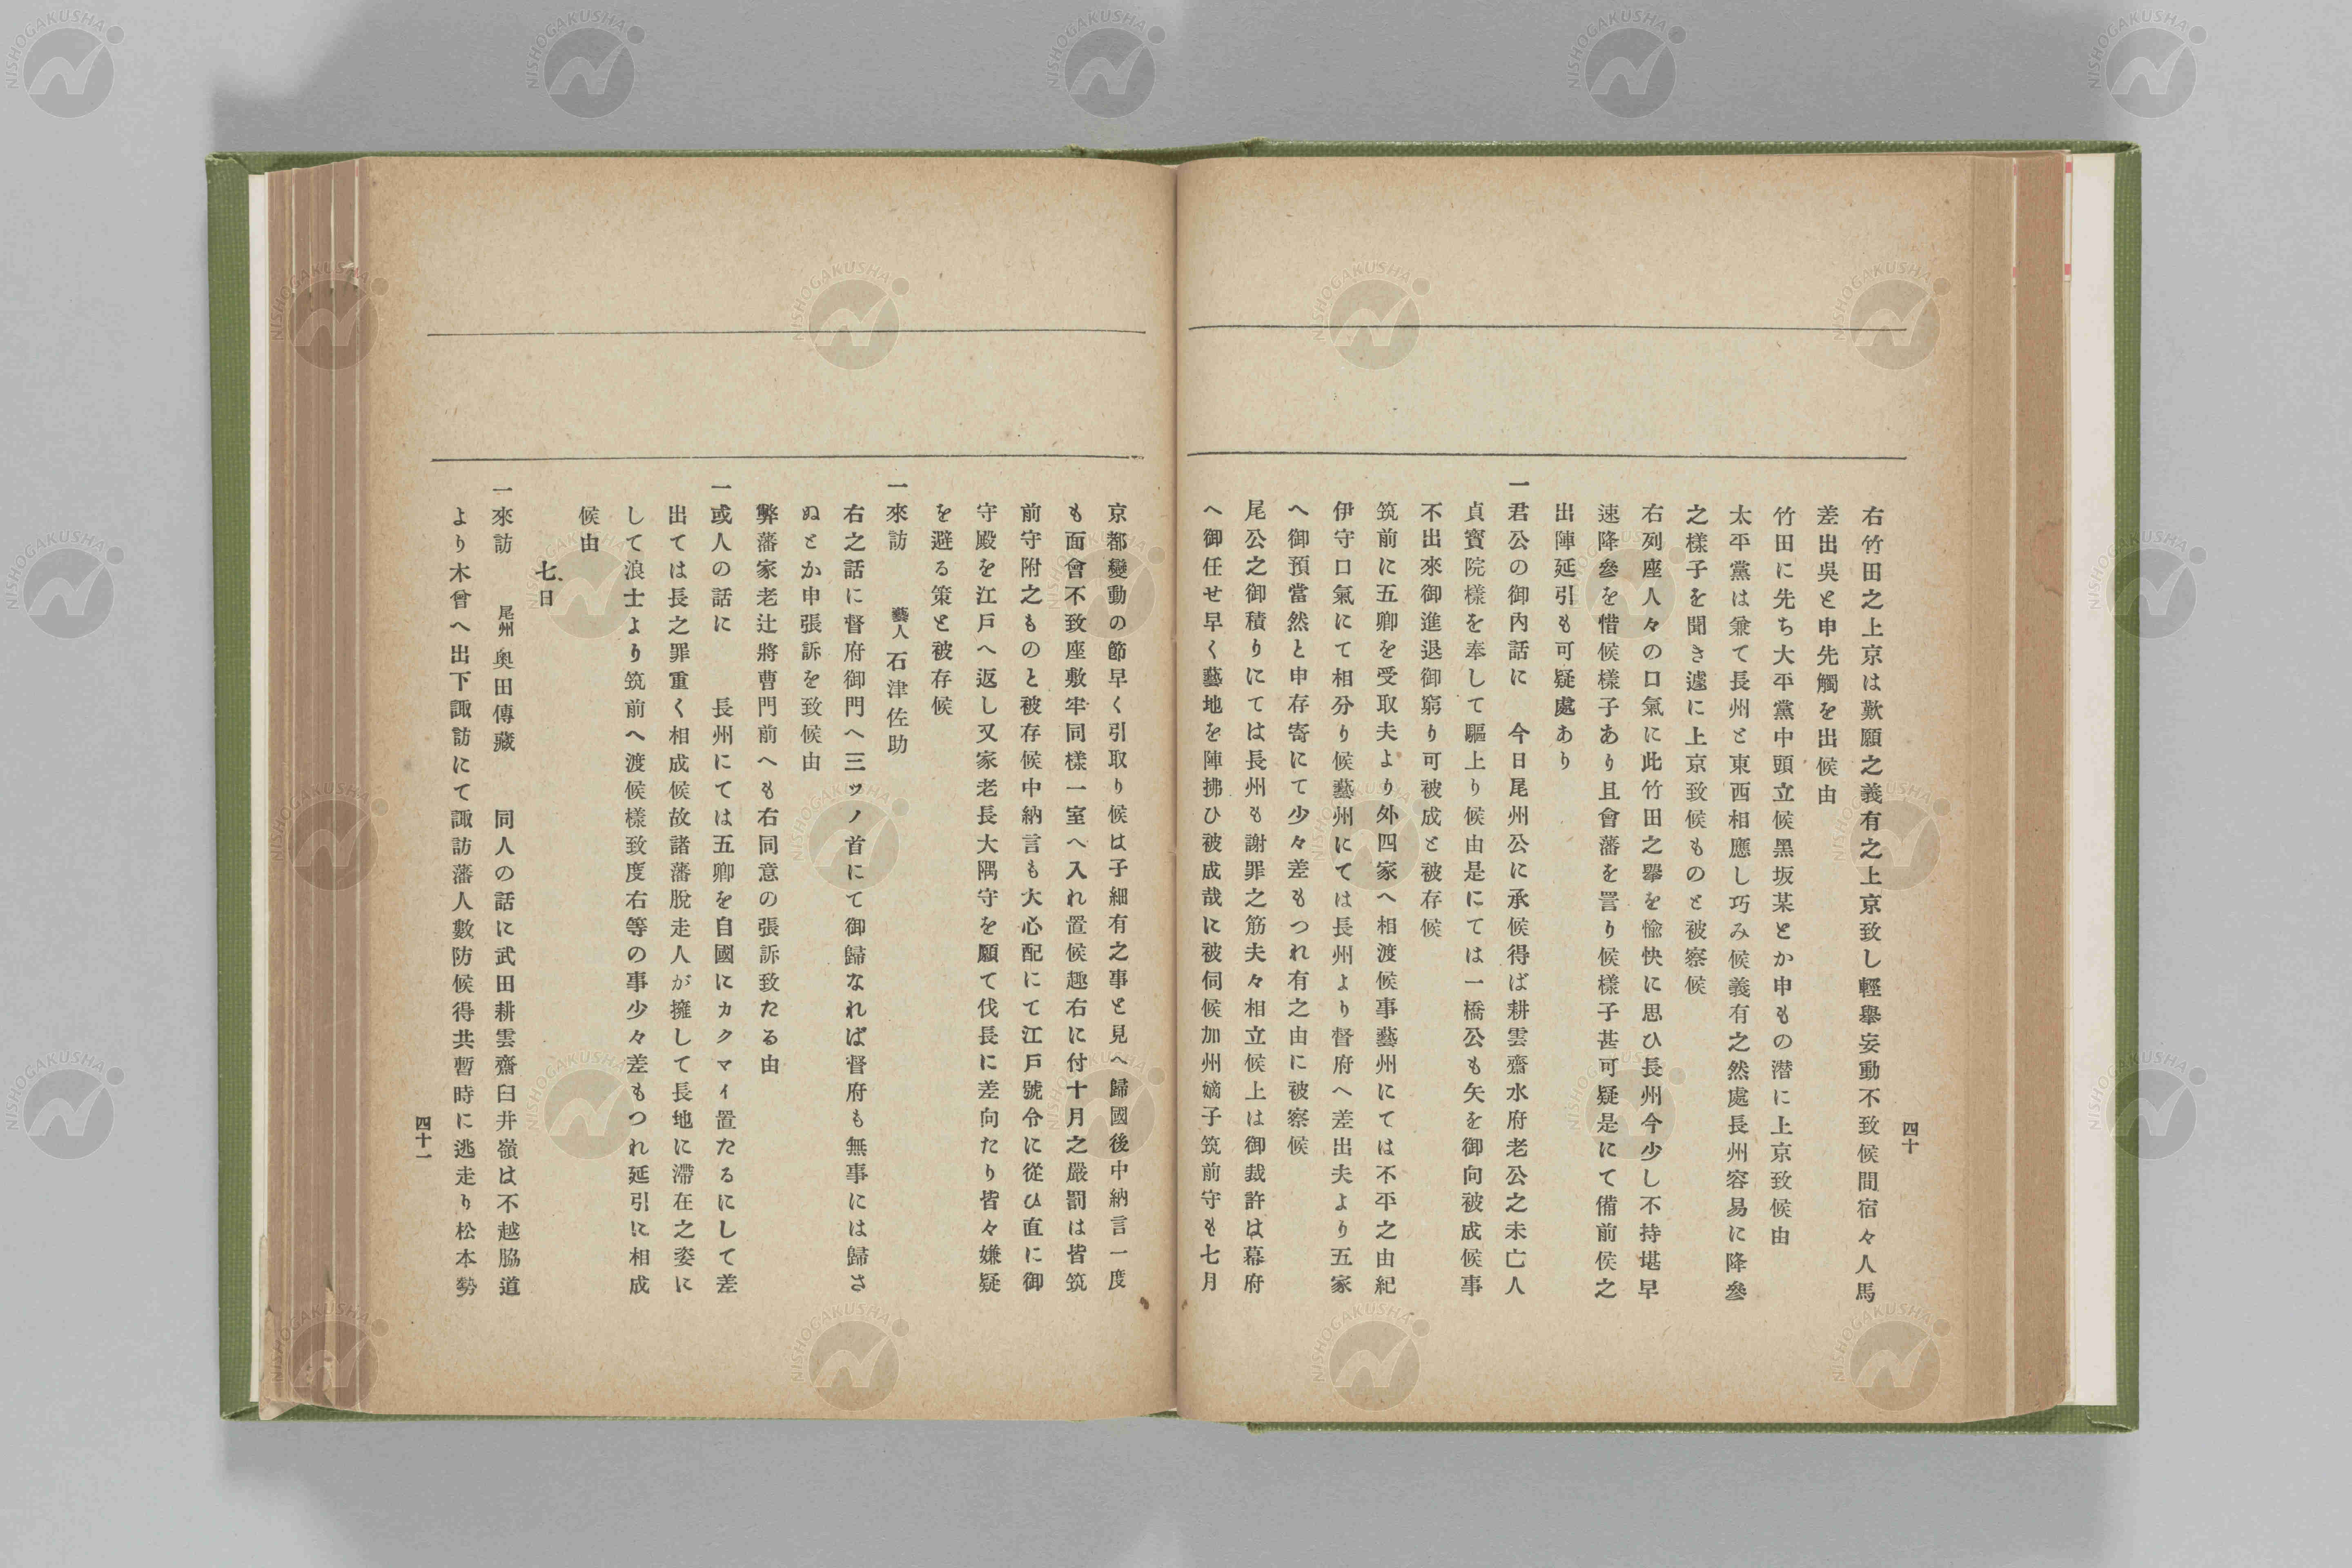 四十
右竹田之上京は歎願之義有之上京致し輕擧妄動不致候間宿々人馬
差出吳と申先觸を出候由
竹田に先ち大平黨中頭立候黑坂某とか申もの潜に上京致候由
太平黨は兼て長州と東西相應し巧み候義有之然處長州容易に降參
之樣子を聞き遽に上京致候ものと被察候
右列座人々の口氣に此竹田之擧を愉快に思ひ長州今少し不持堪早
速降參を惜候樣子あり且會藩を詈り候樣子甚可疑是にて備前侯之
出陣延引も可疑處あり
一君公の御內話に 今日尾州公に承候得ば耕雲齋水府老公之未亡人
貞實院樣を奉して驅上り候由是にては一橋公も矢を御向被成候事
不出來御進退御窮り可被成と被存候
筑前に五卿を受取夫より外四家へ相渡候事藝州にては不平之由紀
伊守口氣にて相分り候藝州にては長州より督府へ差出夫より五家
へ御預當然と申存寄にて少々差もつれ有之由に被察候
尾公之御積りにては長州も謝罪之筋夫々相立候上は御裁許は幕府
へ御任せ早く藝地を陣拂ひ被成哉に被伺候加州嫡子筑前守も七月
京都變動の節早く引取り候は子細有之事と見へ歸國後中納言一度
も面會不致座敷牢同樣一室へ入れ置候趣右に付十月之嚴罰は皆筑
前守附之ものと被存候中納言も大心配にて江戶號令に從ひ直に御
守殿を江戶へ返し又家老長大隅守を願て伐長に差向たり皆々嫌疑
を避る策と被存候
一來訪 藝人 石津佐助
右之話に督府御門へ三ツノ首にて御歸なれば督府も無事には歸さ
ぬとか申張訴を致候由
弊藩家老辻將曹門前へも右同意の張訴致たる由
一或人の話に 長州にては五卿を自國にカクマイ置たるにして差
出ては長之罪重く相成候故諸藩脫走人が擁して長地に滯在之姿に
して浪士より筑前へ渡候樣致度右等の事少々差もつれ延引に相成
候由
七日
一來訪 尾州 奧田傳藏 同人の話に武田耕雲齋臼井嶺は不越脇道
より木曾へ出下諏訪にて諏訪藩人數防候得共暫時に逃走り松本勢
四十一
NISHOGAKUSHA